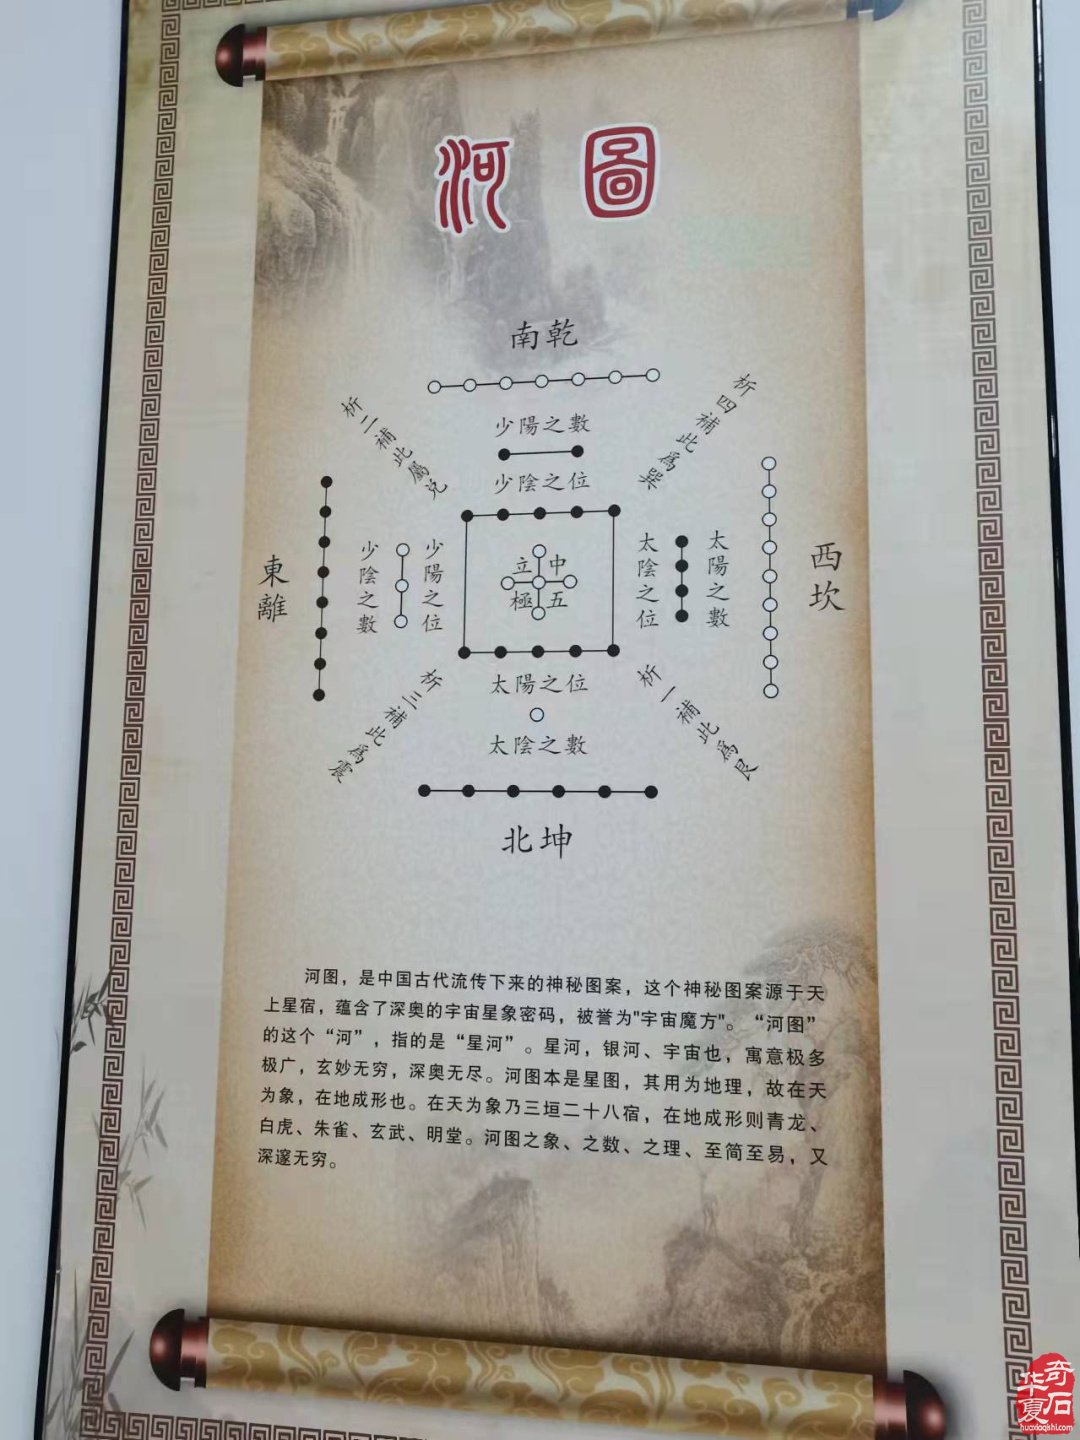 河圖
南乾
少陽之數
少陰之位
析二補此屬兌
析四補此為巽
東離
少陰之數
少陽之位
立中
極五
太陰之位
太陽之數
西坎
析三補此為震
析一補此為艮
太陽之位
太陰之數
北坤
河图，是中国古代流传下来的神秘图案，这个神秘图案源于天
上星宿，蕴含了深奥的宇宙星象密码，被誉为"宇宙魔方"。“河图”
的这个“河”，指的是“星河”。星河，银河、宇宙也，寓意极多
极广，玄妙无穷，深奥无尽。河图本是星图，其用为地理，故在天
为象，在地成形也。在天为象乃三垣二十八宿，在地成形则青龙、
白虎、朱雀、玄武、明堂。河图之象、之数、之理、至简至易，又
深邃无穷。
华夏奇石
huaxiaqishi.com